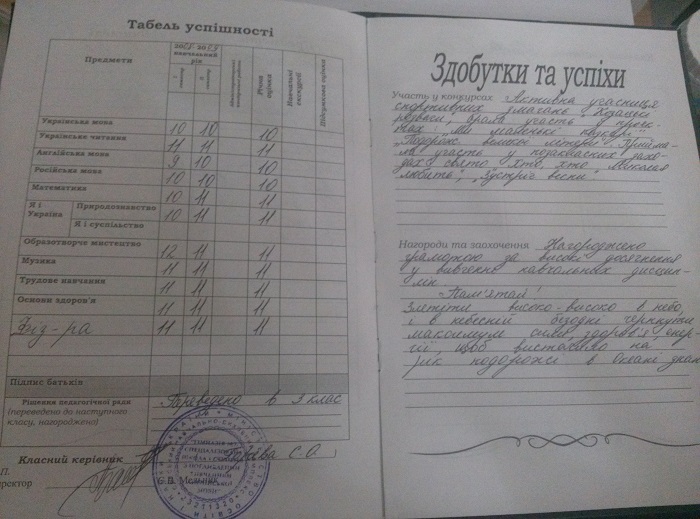 Табель успішності
Предмети
2008-2009 навчальний рік
I семестр
II семестр
Річна оцінка
Навчальні екскурсії
Підсумкова оцінка
Українська мова 10 10 10
Українське читання 11 11 11
Англійська мова 9 10 10
Російська мова 10 10 10
Математика 10 11 11
Я і Україна
Природознавство 10 11 11
Я і суспільство
Образотворче мистецтво 12 11 11
Музика 11 11 11
Трудове навчання 11 11 11
Основи здоров'я 11 11 11
Физ-ра 11 11 11
Підпис батьків
Рішення педагогічної ради Переведено в 3 клас
(переведено до наступного
класу, нагороджена)
Класний керівник
П.
иректор
С.В. Мельник
Здобутки та успіхи
Участь у конкурсах Активна учасниця
спортивних змагань
розваги, брала участь в проек-
тах: "Ми маленькі
"Подорож
ла участь у позакласних захо-
дах: свято "Хто, кто Миколая
любить", "Зустріч весни"
Нагороди та заохочення Нагороджено
грамотою за високі досягнення
у вивченні навчальних дисцип-
лін.
Пам'ятай!
Злетіти високо-високо в небо,
і в небесній безодні черкнути
максимум сили, здоров'я, енер-
гії, щоб вистачило на
рік подорожі в Океані знань